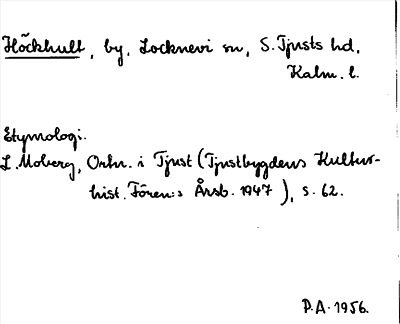 Höckhult, by, Locknevi sn, S. Tjusts hd,
Kalm. l.
Etymologi.
L. Moberg, Ortn. i Tjust (Tjustbygdens Kultur-
hist. Fören:s Årsb. 1947), s. 62.
P.A. 1956.